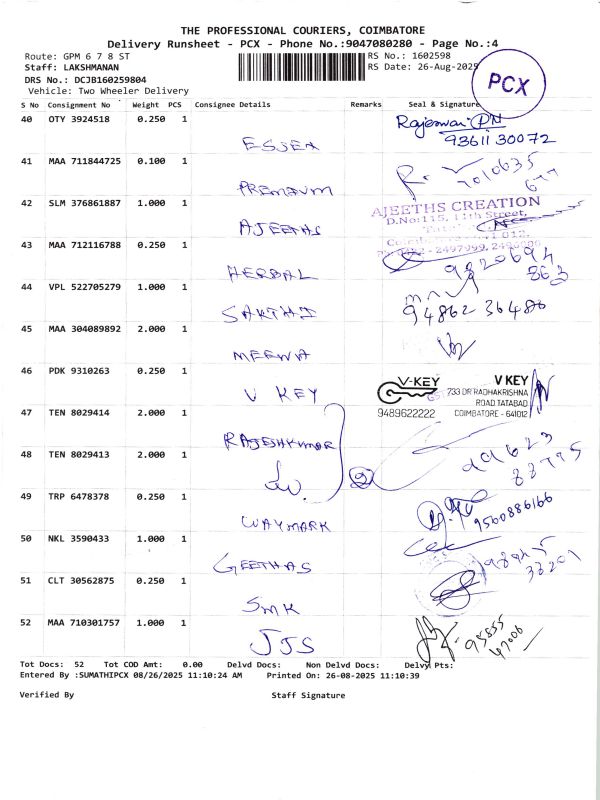 THE PROFESSIONAL COURIERS, COIMBATORE
Delivery Runsheet - PCX - Phone No.:9047080280 - Page No.:4
Route: GPM 6 7 8 ST
RS No.: 1602598
Staff: LAKSHMANAN
RS Date: 26-Aug-2025
DRS No.: DCJB160259804
Vehicle: Two Wheeler Delivery
PCX
S No Consignment No Weight PCS Consignee Details Remarks Seal & Signature
40 OTY 3924518 0.250 1
Rajeswari PN
9361130072
ESJEA
41 MAA 711844725 0.100 1
PREMIUM
42 SLM 376861887 1.000 1
AJEETHS CREATION
D.No:115, 11th Street,
AJEETHS
43 MAA 712116788 0.250 1
HERBAL
863
44 VPL 522705279 1.000 1
94862 36486
SAKTHI
45 MAA 304089892 2.000 1
MEENA
46 PDK 9310263 0.250 1
V KEY
V-KEY
9489622222
V KEY
733 DR RADHAKRISHNA
ROAD, TATABAD
COIMBATORE - 641012
47 TEN 8029414 2.000 1
RAJESHKUMAR
48 TEN 8029413 2.000 1
2
49 TRP 6478378 0.250 1
9500886166
WAYMARK
50 NKL 3590433 1.000 1
GEETHAS
51 CLT 30562875 0.250 1
SMK
52 MAA 710301757 1.000 1
JJS
Tot Docs: 52 Tot COD Amt: 0.00 Delvd Docs: Non Delvd Docs: Delvy Pts:
Entered By :SUMATHIPCX 08/26/2025 11:10:24 AM Printed On: 26-08-2025 11:10:39
Verified By Staff Signature